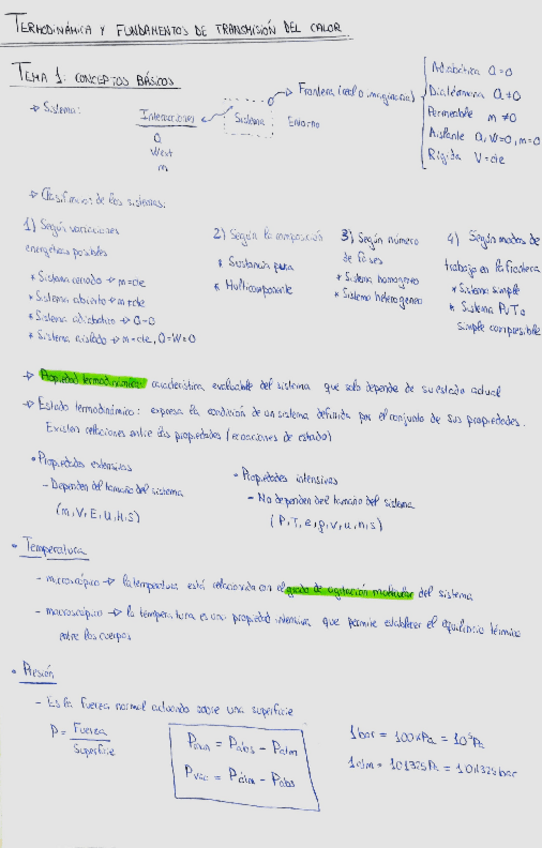 TERMODINÁMICA Y FUNDAMENTOS DE TRANSMISIÓN DEL CALOR
TEMA 1: CONCEPTOS BÁSICOS
→ Sistema:
Interacciones
Q
West
m
Sistema
Entorno
→ Frontera (real o imaginaria)
Adiabática Q=0
Diatérmana Q≠0
Permeable m≠0
Aislante Q, W=0, m=0
Rígida V=cte
→ Clasificación de los sistemas:
1) Según variaciones
energéticas posibles
* Sistema cerrado → m=cte
* Sistema abierto → m≠cte
* Sistema adiabático → Q=0
* Sistema aislado → m=cte, Q=W=0
2) Según la composición
* Sustancia pura
* Multicomponente
3) Según número
de fases
* Sistema homogéneo
* Sistema heterogéneo
4) Según modos de
trabajo en la frontera
* Sistema simple
* Sistema PVT o
simple compresible
→ Propiedad termodinámica: característica evaluable del sistema que solo depende de su estado actual
→ Estado termodinámico: expresa la condición de un sistema definida por el conjunto de sus propiedades.
Existen relaciones entre las propiedades (ecuaciones de estado)
• Propiedades extensivas
- Dependen del tamaño del sistema
(m, V, E, U, H, S)
• Propiedades intensivas
- No dependen del tamaño del sistema
(P, T, e, ρ, v, u, h, s)
• Temperatura
- microscópico → la temperatura está relacionada con el grado de agitación molecular del sistema
- macroscópico → la temperatura es una propiedad intensiva que permite establecer el equilibrio térmico
entre los cuerpos
• Presión
- Es la fuerza normal actuando sobre una superficie
P = Fuerza
Superficie
Pman = Pabs - Patm
Pvac = Patm - Pabs
1 bar = 100 kPa = 10⁵ Pa
1 atm = 101325 Pa = 1,01325 bar